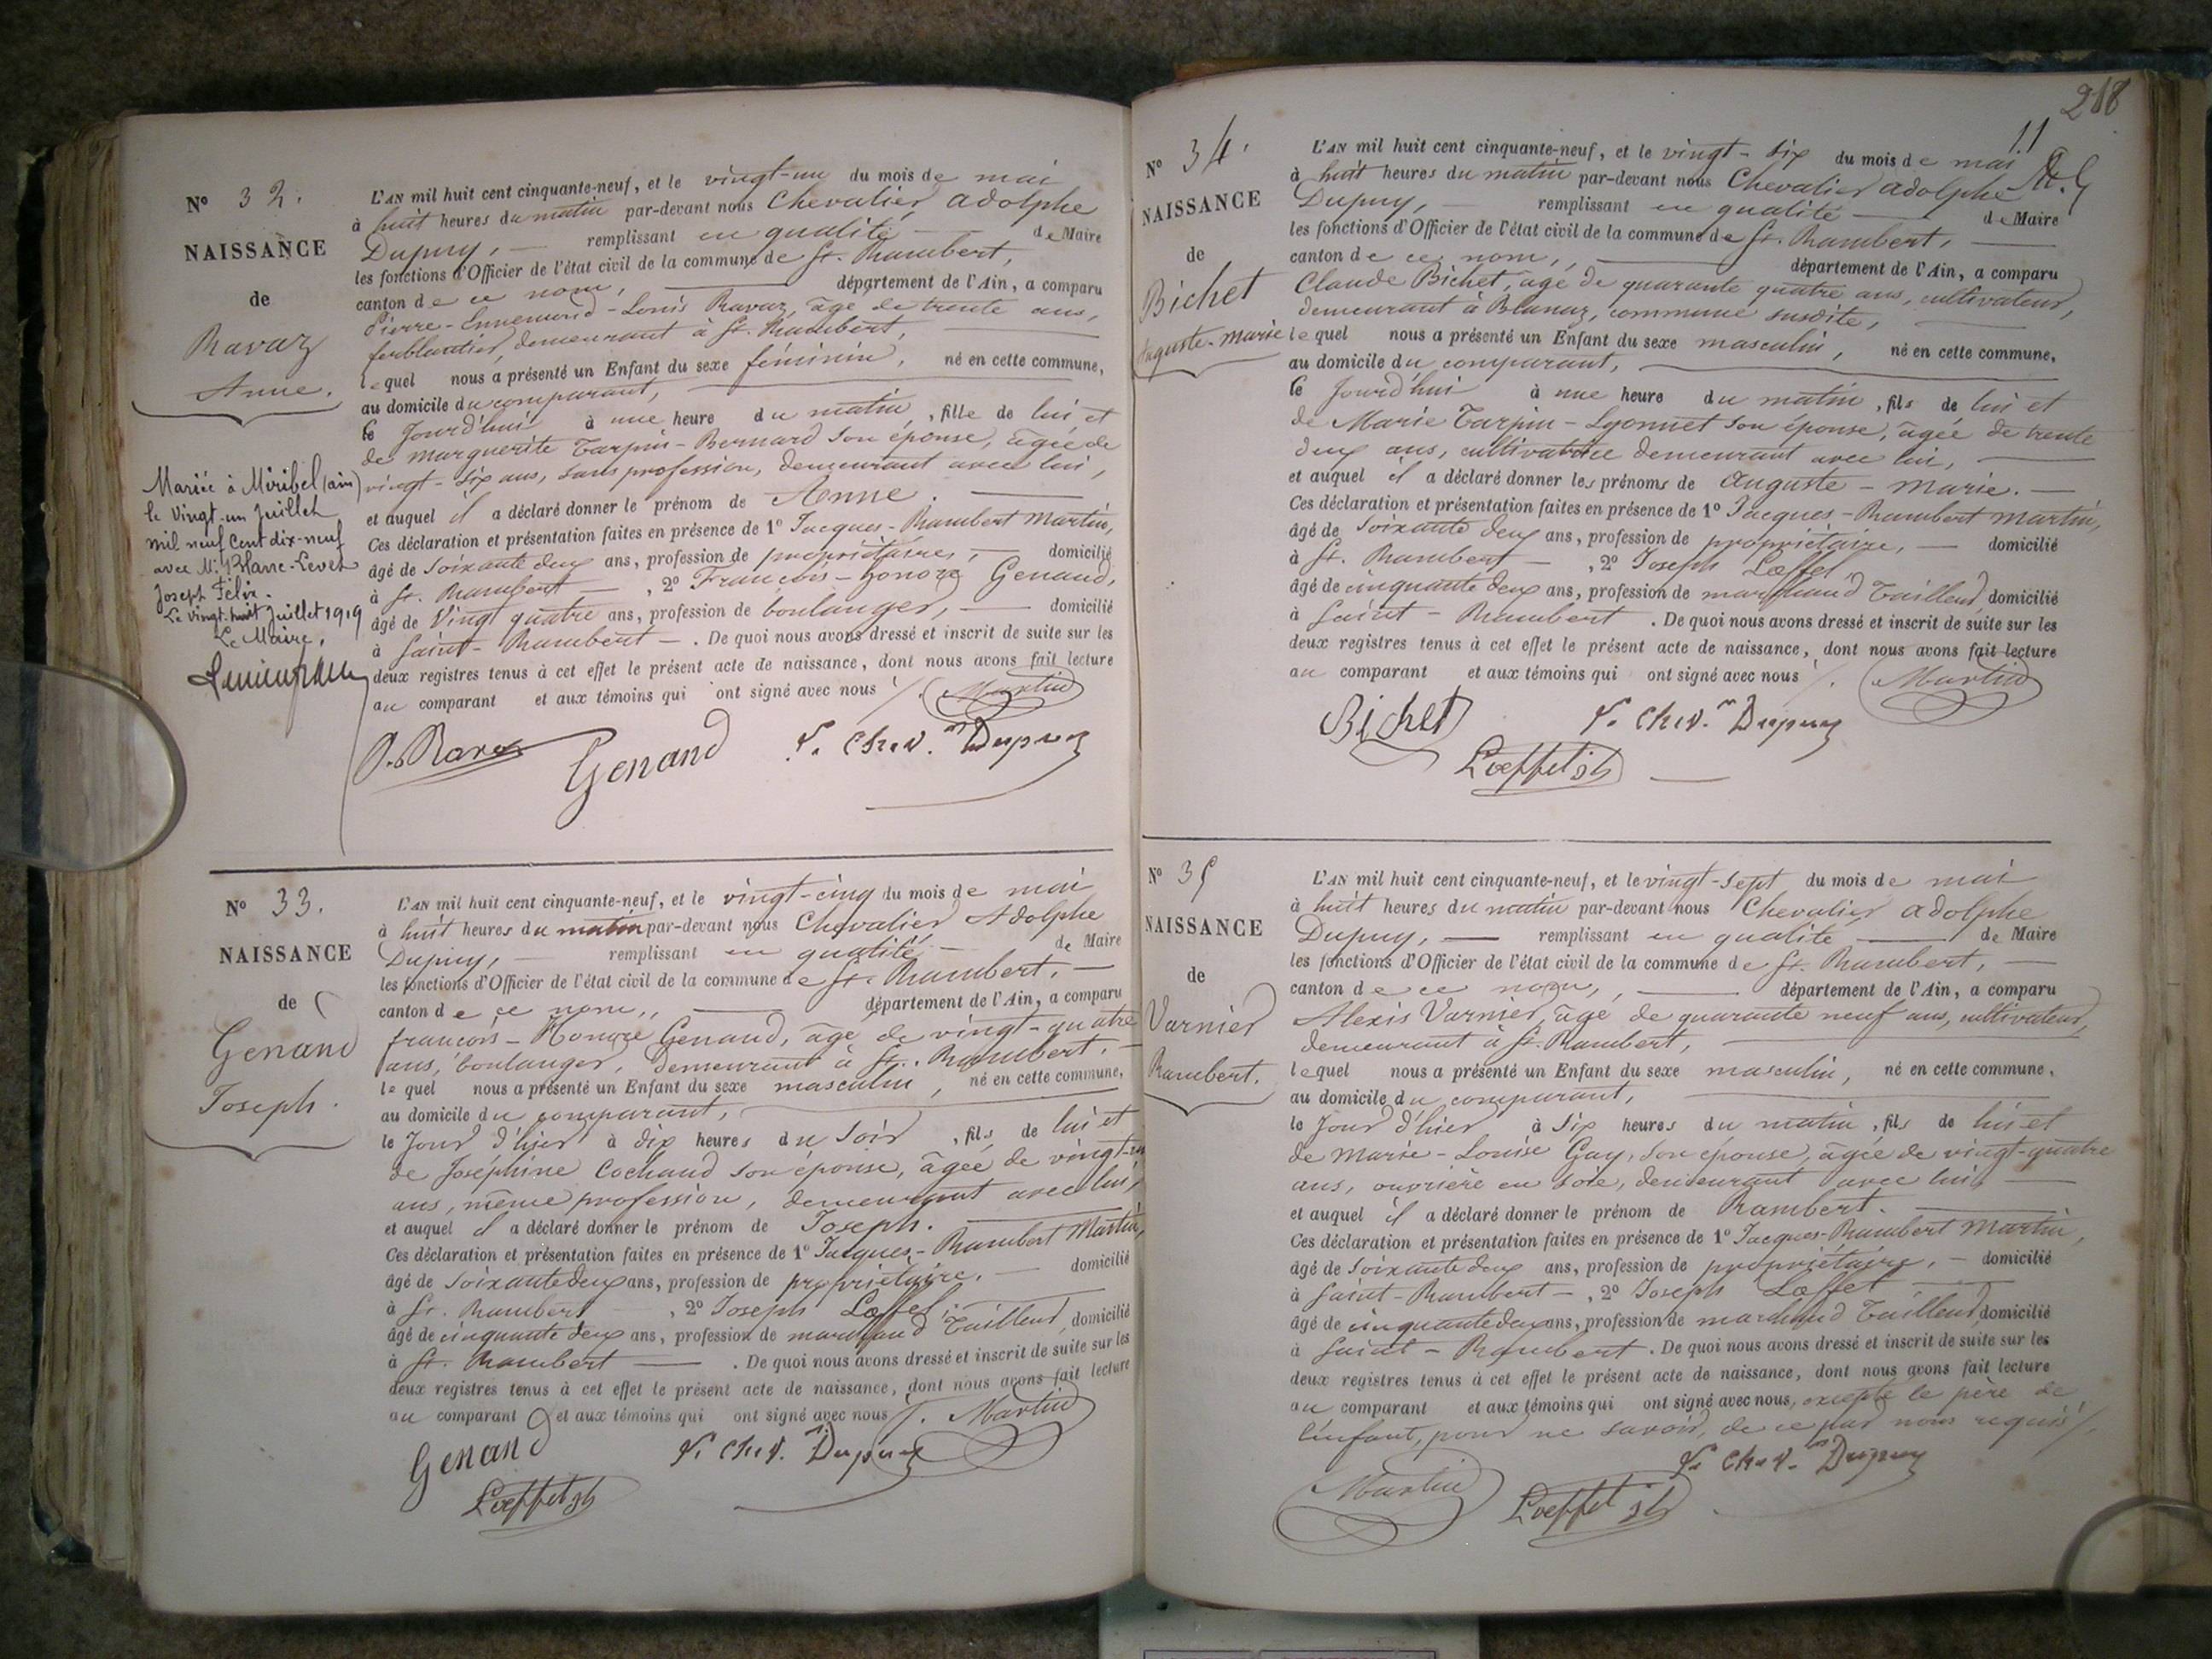 N° 32.
NAISSANCE
de
Ravaz
Anne.
Mariée à Miribel (ain)
le vingt-un Juillet
mil neuf cent dix-neuf
avec Mr Blanc-Levet
Joseph Félix.
Le vingt-huit Juillet 1919
Le Maire,
L'AN mil huit cent cinquante-neuf, et le vingt-un du mois de mai
à huit heures du matin par-devant nous Chevalier Adolphe
Dupuy, — remplissant en qualité — de Maire
les fonctions d'Officier de l'état civil de la commune de St. Rambert,
canton de ce nom, — département de l'Ain, a comparu
Pierre-Ennemond-Louis Ravaz, âgé de trente ans,
ferblantier, demeurant à St. Rambert,
lequel nous a présenté un Enfant du sexe féminin, né en cette commune,
au domicile du comparant,
le Jourd'hui à une heure du matin, fille de lui et
de Marguerite Tarpin-Bernard son épouse, âgée de
vingt-six ans, sans profession, demeurant avec lui,
et auquel il a déclaré donner le prénom de Anne. —
Ces déclaration et présentation faites en présence de 1° Jacques-Rambert Martin,
âgé de soixante deux ans, profession de propriétaire, — domicilié
à St. Rambert — , 2° François-honoré Genand,
âgé de vingt quatre ans, profession de boulanger, — domicilié
à Saint-Rambert — . De quoi nous avons dressé et inscrit de suite sur les
deux registres tenus à cet effet le présent acte de naissance, dont nous avons fait lecture
au comparant et aux témoins qui ont signé avec nous /. Martin
P. Ravaz Genand Chev. Dupuy
N° 33.
NAISSANCE
de
Genand
Joseph.
L'AN mil huit cent cinquante-neuf, et le vingt-cinq du mois de mai
à huit heures du matin par-devant nous Chevalier Adolphe
Dupuy, — remplissant en qualité — de Maire
les fonctions d'Officier de l'état civil de la commune de St. Rambert, —
canton de ce nom, — département de l'Ain, a comparu
françois-Honoré Genand, âgé de vingt-quatre
ans, boulanger, demeurant à St. Rambert, —
lequel nous a présenté un Enfant du sexe masculin, né en cette commune,
au domicile du comparant,
le Jour d'hier à dix heures du soir, fils de lui et
de Joséphine Cochaud son épouse, âgée de vingt-un
ans, même profession, demeurant avec lui,
et auquel il a déclaré donner le prénom de Joseph. —
Ces déclaration et présentation faites en présence de 1° Jacques-Rambert Martin,
âgé de soixante deux ans, profession de propriétaire, — domicilié
à St. Rambert — , 2° Joseph Lœffel, —
âgé de cinquante deux ans, profession de marchand Tailleur, domicilié
à St. Rambert — . De quoi nous avons dressé et inscrit de suite sur les
deux registres tenus à cet effet le présent acte de naissance, dont nous avons fait lecture
au comparant et aux témoins qui ont signé avec nous /. Martin
Genand Chev. Dupuy
Lœffel
218
11
N° 34.
NAISSANCE
de
Bichet
Auguste-Marie
L'AN mil huit cent cinquante-neuf, et le vingt-six du mois de mai
à huit heures du matin par-devant nous Chevalier Adolphe
Dupuy, — remplissant en qualité — de Maire
les fonctions d'Officier de l'état civil de la commune de St. Rambert, —
canton de ce nom, — département de l'Ain, a comparu
Claude Bichet, âgé de quarante quatre ans, cultivateur,
demeurant à Blanaz, commune susdite,
lequel nous a présenté un Enfant du sexe masculin, né en cette commune,
au domicile du comparant,
le Jourd'hui à une heure du matin, fils de lui et
de Marie Tarpin-Lyonnet son épouse, âgée de trente
deux ans, cultivatrice demeurant avec lui, —
et auquel il a déclaré donner les prénoms de Auguste-Marie. —
Ces déclaration et présentation faites en présence de 1° Jacques-Rambert Martin,
âgé de soixante deux ans, profession de propriétaire, — domicilié
à St. Rambert — , 2° Joseph Lœffel
âgé de cinquante deux ans, profession de marchand Tailleur, domicilié
à Saint-Rambert . De quoi nous avons dressé et inscrit de suite sur les
deux registres tenus à cet effet le présent acte de naissance, dont nous avons fait lecture
au comparant et aux témoins qui ont signé avec nous /. Martin
Bichet Chev. Dupuy
Lœffel
N° 35
NAISSANCE
de
Varnier
Rambert.
L'AN mil huit cent cinquante-neuf, et le vingt-sept du mois de mai
à huit heures du matin par-devant nous Chevalier Adolphe
Dupuy, — remplissant en qualité — de Maire
les fonctions d'Officier de l'état civil de la commune de St. Rambert, —
canton de ce nom, — département de l'Ain, a comparu
Alexis Varnier, âgé de quarante neuf ans, cultivateur,
demeurant à St. Rambert,
lequel nous a présenté un Enfant du sexe masculin, né en cette commune,
au domicile du comparant,
le Jour d'hier à six heures du matin, fils de lui et
de Marie-Louise Gay, son épouse, âgée de vingt-quatre
ans, ouvrière en soie, demeurant avec lui, —
et auquel il a déclaré donner le prénom de Rambert. —
Ces déclaration et présentation faites en présence de 1° Jacques-Rambert Martin,
âgé de soixante deux ans, profession de propriétaire, — domicilié
à Saint-Rambert — , 2° Joseph Lœffel —
âgé de cinquante deux ans, profession de marchand Tailleur, domicilié
à Saint-Rambert . De quoi nous avons dressé et inscrit de suite sur les
deux registres tenus à cet effet le présent acte de naissance, dont nous avons fait lecture
au comparant et aux témoins qui ont signé avec nous, excepté le père de
l'enfant, pour ne savoir, de ce par nous requis /.
Chev. Dupuy
Martin Lœffel